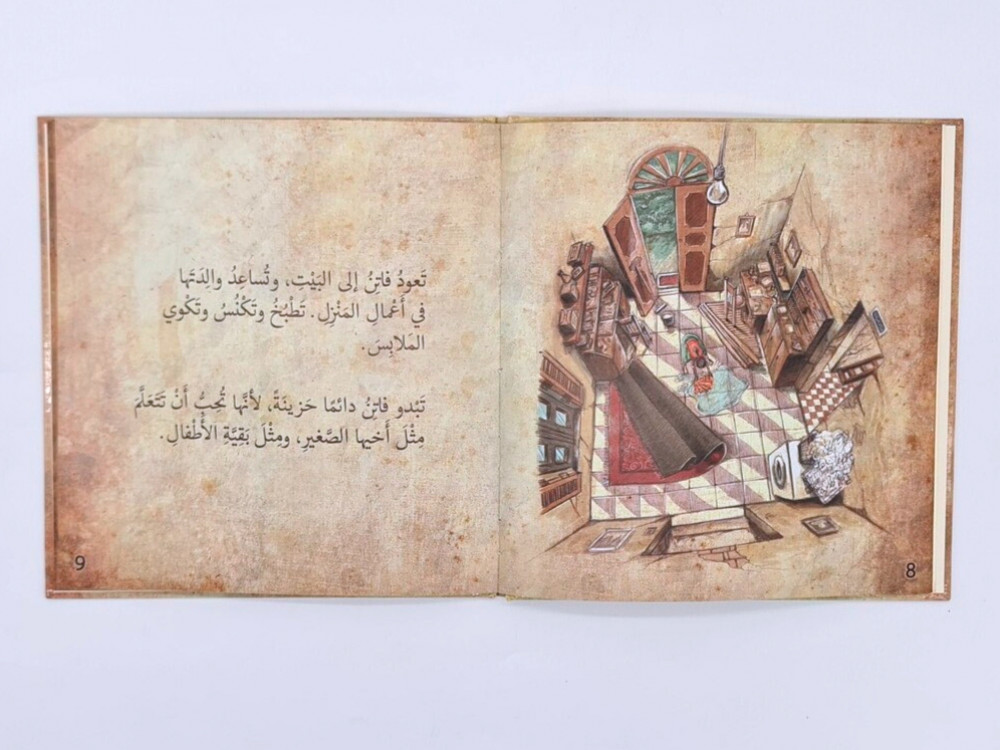 تَعودُ فاتِنُ إلى البَيْتِ، وتُساعِدُ والِدَتَها
في أَعْمالِ المَنْزِلِ. تَطْبُخُ وتَكْنُسُ وتَكْوي
المَلابِسَ.
تَبْدو فاتِنُ دائمًا حَزينَةً، لأنَّها تُحِبُّ أَنْ تَتَعَلَّمَ
مِثْلَ أَخيها الصَّغيرِ، ومِثْلَ بَقِيَّةِ الأَطْفالِ.
8
9